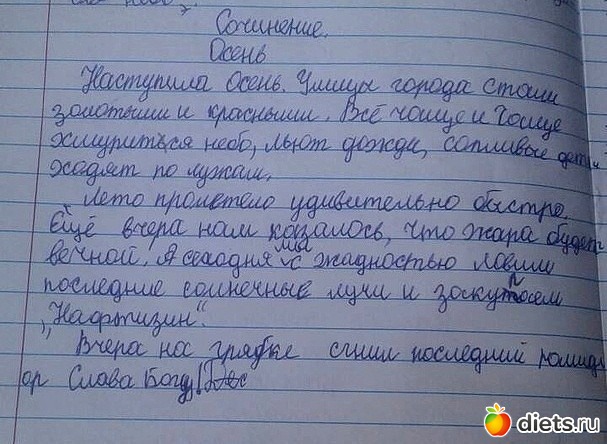 Сочинение.
Осень
Наступила Осень. Улицы города стали
золотыми и красными. Всё чаще и Чаще
хмуриться небо, льют дожди, сопливые дети
ходят по лужам.
Лето пролетело удивительно быстро.
Ещё вчера нам казалось, что жара будет
вечной. А сегодня мы с жадностью ловим
последние солнечные лучи и закупаем
"Нафтизин".
Вчера на грядке сгнил последний помид
ор Слава Богу!
diets.ru